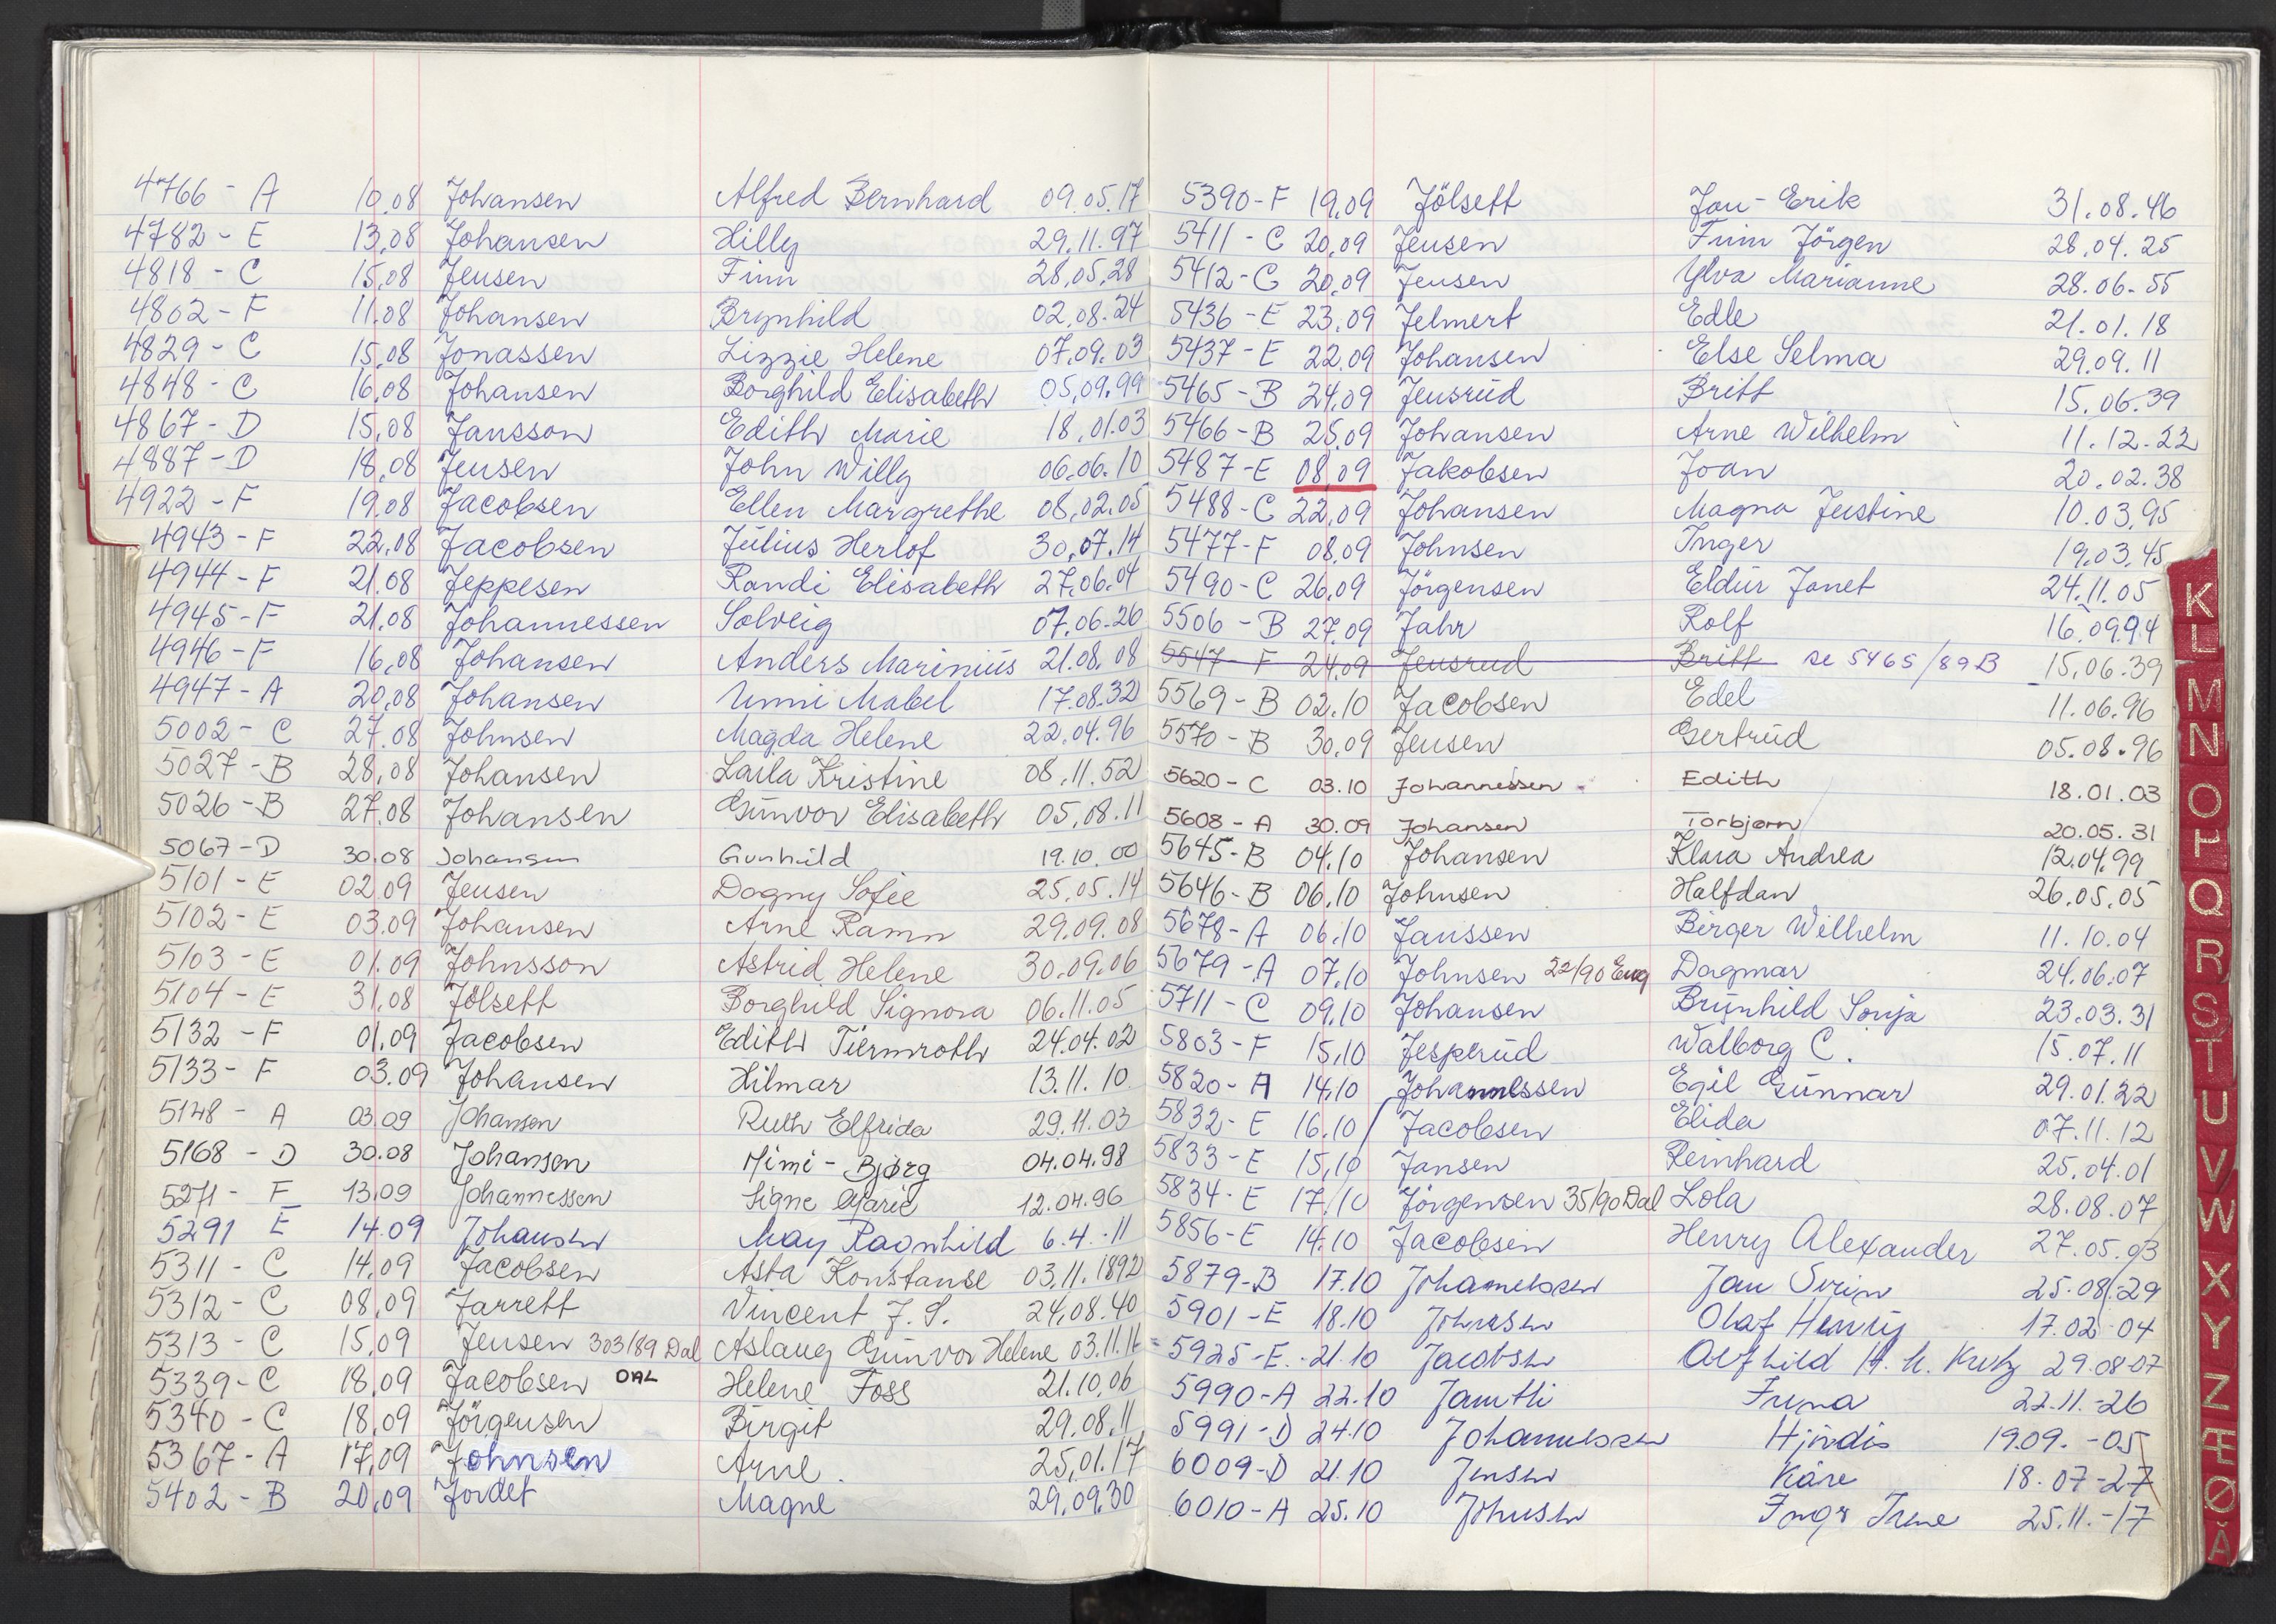 4766 - A 10.08 Johansen Alfred Bernhard 09.05.17
4782 - E 13.08 Johansen Hilly 29.11.97
4818 - C 15.08 Jensen Finn 28.05.28
4802 - F 11.08 Johansen Brynhild 02.08.24
4829 - C 15.08 Jonassen Lizzie Helene 07.09.03
4848 - C 16.08 Johansen Borghild Elisabeth 05.09.99
4867 - D 15.08 Jansson Edith Marie 18.01.03
4887 - D 18.08 Jensen John Willy 06.06.10
4922 - F 19.08 Jacobsen Ellen Margrethe 08.02.05
4943 - F 22.08 Jacobsen Julius Herlof 30.07.14
4944 - F 21.08 Jeppesen Randi Elisabeth 27.06.04
4945 - F 21.08 Johannessen Solveig 07.06.26
4946 - F 16.08 Johansen Anders Marinius 21.08.08
4947 - A 20.08 Johansen Unni Mabel 17.08.32
5002 - C 27.08 Johnsen Magda Helene 22.04.96
5027 - B 28.08 Johansen Laila Kristine 08.11.52
5026 - B 27.08 Johansen Gunvor Elisabeth 05.08.11
5067 - D 30.08 Johansen Gunhild 19.10.00
5101 - E 02.09 Jensen Dagny Sofie 25.05.14
5102 - E 03.09 Johansen Arne Ramn 29.09.08
5103 - E 01.09 Johnsson Astrid Helene 30.09.06
5104 - E 31.08 Jølsett Borghild Signora 06.11.05
5132 - F 01.09 Jacobsen Edith Tiermroth 24.04.02
5133 - F 03.09 Johansen Hilmar 13.11.10
5148 - A 03.09 Johansen Ruth Elfrida 29.11.03
5168 - D 30.08 Johansen Mimi - Bjørg 04.04.98
5271 - F 13.09 Johannessen Signe Marie 12.04.96
5291 E 14.09 Johansen May Ragnhild 6.4.-11
5311 - C 14.09 Jacobsen Asta Konstanse 03.11.1892
5312 - C 08.09 Jarrett Vincent J. S. 24.08.40
5313 - C 15.09 Jensen 303/89 Dal Aslaug Gunvor Helene 03.11.11
5339 - C 18.09 Jacobsen DAL Helene Foss 21.10.06
5340 - C 18.09 Jörgensen Birgit 29.08.11
5367 - A 17.09 Johnsen Arne 25.01.17
5402 - B 20.09 Jordet Magne 29.09.30
5390 - F 19.09 Jölsett Jan - Erik 31.08.46
5411 - C 20.09 Jensen Finn Jörgen 28.04.25
5412 - C 20.09 Jensen Ylva Marianne 28.06.55
5436 - E 23.09 Jelmert Edle 21.01.18
5437 - E 22.09 Johansen Else Selma 29.09.11
5465 - B 24.09 Jensrud Britt 15.06.39
5466 - B 25.09 Johansen Arne Wilhelm 11.12.22
5487 - E 08.09 Jakobsen Joan 20.02.38
5488 - C 22.09 Johansen Magna Justine 10.03.95
5477 - F 08.09 Johnsen Inger 19.03.45
5490 - C 26.09 Jörgensen Eldur Janet 24.11.05
5506 - B 27.09 Jahr Rolf 16.09.94
5547 - F 24.09 Jensrud Britt se 5465/89 B 15.06.39
5569 - B 02.10 Jacobsen Edel 11.06.96
5570 - B 30.09 Jensen Gertrud 05.08.96
5620 - C 03.10 Johannessen Edith 18.01.03
5608 - A 30.09 Johansen Torbjørn 20.05.31
5645 - B 04.10 Johansen Klara Andrea 12.04.99
5646 - B 06.10 Johnsen Halfdan 26.05.05
5678 - A 06.10 Janssen Birger Wilhelm 11.10.04
5679 - A 07.10 Johnsen 22/90 Eng Dagmar 24.06.07
5711 - C 09.10 Johansen Brynhild Sonja 23.03.31
5803 - F 15.10 Jesperud Walborg C. 15.07.11
5820 - A 14.10 Johannessen Egil Gunnar 29.01.22
5832 - E 16.10 Jacobsen Elida 07.11.12
5833 - E 15.10 Jansen Reinhard 25.04.01
5834 - E 17.10 Jörgensen 35/90 Dal Lola 28.08.07
5856 - E 14.10 Jacobsen Henry Alexander 27.05.03
5879 - B 17.10 Johannessen Jan Sverin 25.08.29
5901 - E 18.10 Johnsen Olaf Henry 17.02-04
5925 - E. 21.10 Jacobsen Alfhild H. M. 29.08-07
5990 - A 22.10 Jamtli 22.11.-26
5991 - D 24.10 Johannessen Hjördis 19.09.-05
6009 - D 21.10 Jensen Kåre 18.07-27
6010 - A 25.10 Johnsen Inger Irene 25.11.-17
K
L
M
N
O
P
Q
R
S
T
U
V
W
X
Y
Z
Æ
Ø
Å